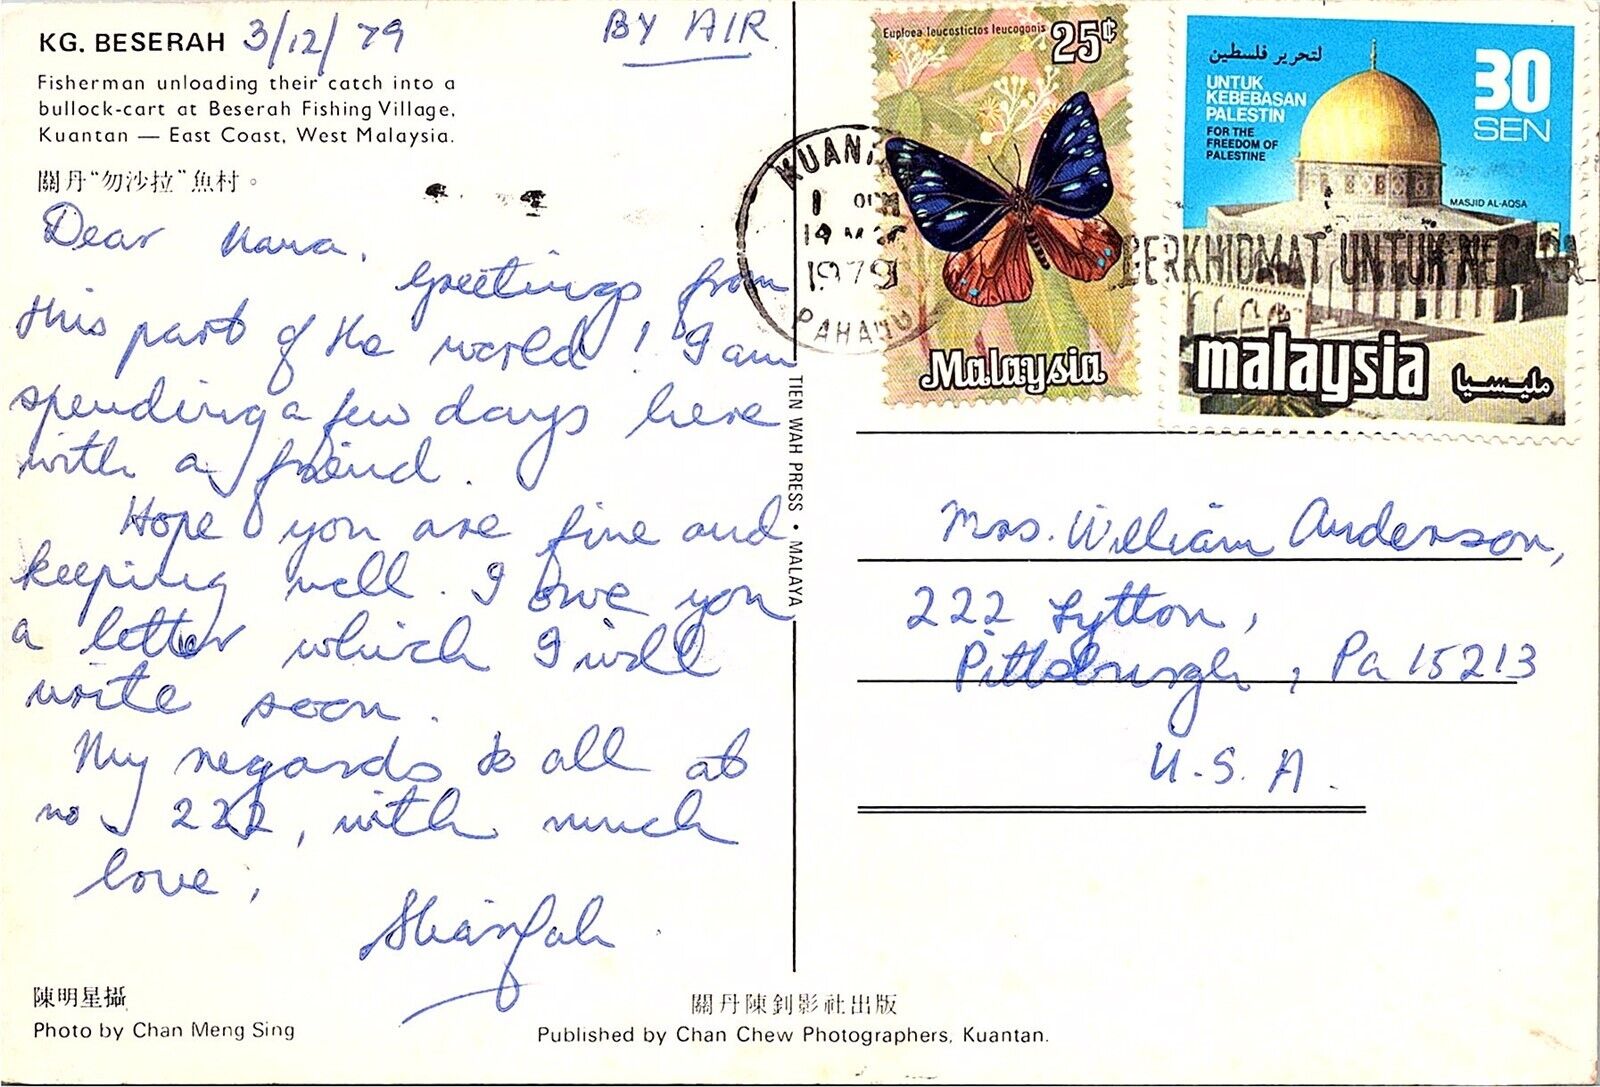 KG. BESERAH 3/12/79
BY AIR
Fisherman unloading their catch into a
bullock-cart at Beserah Fishing Village,
Kuantan — East Coast, West Malaysia.
關丹“勿沙拉”魚村。
Dear
Greetings from
this part of the world! I am
spending a few days here
with a friend.
Hope you are fine and
keeping well. I owe you
a letter which I will
write soon.
My regards to all at
no 222, with much
love,
陳明星攝
Photo by Chan Meng Sing
關丹陳釗影社出版
Published by Chan Chew Photographers, Kuantan.
TIEN WAH PRESS • MALAYA
Euploea leucostictos leucogonis
25¢
Malaysia
لتحرير فلسطين
UNTUK
KEBEBASAN
PALESTIN
FOR THE
FREEDOM OF
PALESTINE
30
SEN
MASJID AL-AQSA
malaysia
مليسيا
1979
PAHANG
BERKHIDMAT UNTUK NEGARA
Mrs. William Anderson,
222 Lytton,
Pittsburgh, Pa 15213
U.S.A.